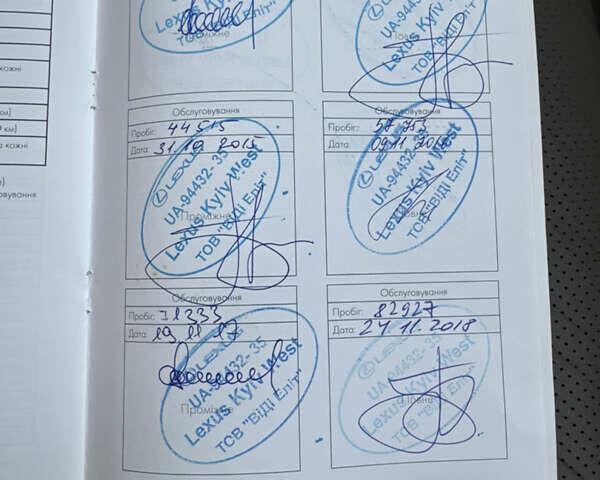 Проміжне
ТОВ "ВІДІ Еліт"
UA-94432-35
Lexus Kyiv West
ТОВ "ВІДІ
кожні
км)
км)
кожні
овування
Обслуговування
Пробіг: 44515
Дата: 2015
LEXUS
UA-94432-35
Lexus Kyiv West
ТОВ "ВІДІ Еліт"
Проміжне
Обслуговування
Пробіг:
Дата: 09.11
LEXUS
UA-94432-35
Lexus Kyiv West
ТОВ "ВІДІ Еліт"
Обслуговування
Пробіг:
Дата: 19 11 17
LEXUS
UA-94432-35
Lexus Kyiv West
ТОВ "ВІДІ Еліт"
Проміжне
Обслуговування
Пробіг: 82927
Дата: 24 11.2018
LEXUS
UA-94432-35
Lexus Kyiv West
ТОВ "ВІДІ Еліт"
Повне